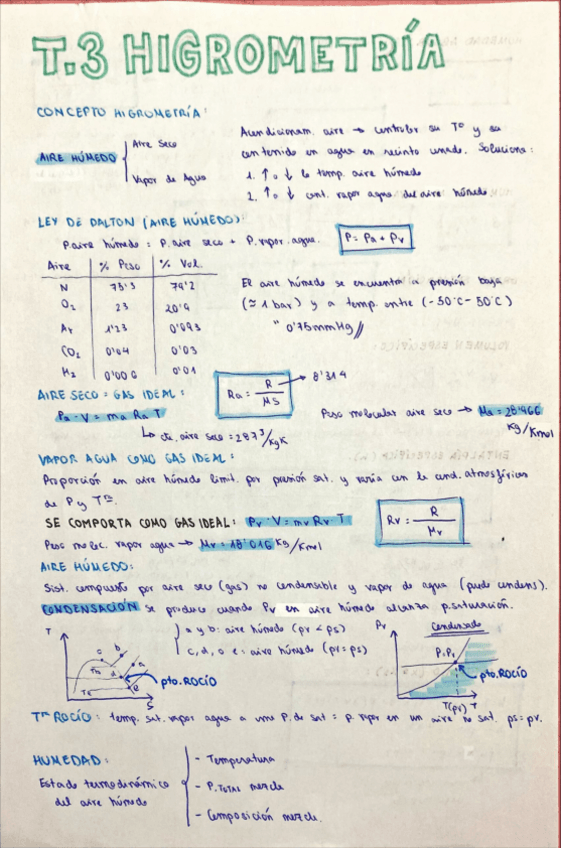 T.3 HIGROMETRÍA
CONCEPTO HIGROMETRÍA:
AIRE HÚMEDO
Aire Seco
Vapor de Agua
Acondicionam. aire → controlar su Tª y su
contenido en agua en recinto cerrado. Soluciona:
1. ↑ o ↓ la temp. aire húmedo
2. ↑ o ↓ cont. vapor agua del aire húmedo
LEY DE DALTON (AIRE HÚMEDO):
P.aire húmedo = P. aire seco + P. vapor.agua.
P = Pa + Pv
Aire | % Peso | % Vol.
N 75'5 79'2
O2 23 20'9
Ar 1'23 0'093
CO2 0'04 0'03
H2 0'01
El aire húmedo se encuentra a presión baja
(≈ 1 bar) y a temp. entre (-50ºC - 50ºC)
"0'75mmHg"
AIRE SECO = GAS IDEAL:
Pa · V = ma Ra T
Ra = R / Ms → 8'314
Peso molecular aire seco → Ma = 28'966
kg/Kmol
↳ cte. aire seco = 287 J/kgK
VAPOR AGUA COMO GAS IDEAL:
Proporción en aire húmedo limit. por presión sat. y varía con la cond. atmosféricas
de P y Tª.
SE COMPORTA COMO GAS IDEAL: Pv · V = mv Rv T
Rv = R / Mv
Peso molec. vapor agua → Mv = 18'016 kg/Kmol
AIRE HÚMEDO:
Sist. compuesto por aire seco (gas) no condensible y vapor de agua (puede condens).
CONDENSACIÓN se produce cuando Pv en aire húmedo alcanza p.saturación.
T
a y b: aire húmedo (pv < ps)
c, d, o e: aire húmedo (pv = ps)
pto.ROCÍO
S
Pv
Condensado
P.Ps
pto.ROCÍO
T(pv) T
Tª ROCÍO: temp. sat. vapor agua a una P. de sat = p. vapor en un aire no sat. ps = pv.
HUMEDAD:
Estado termodinámico
del aire húmedo
- Temperatura
- P.TOTAL mezcla
- Composición mezcla.